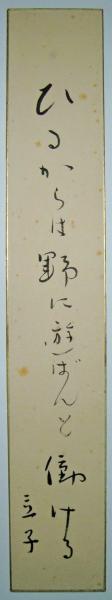 ひるからは野に遊ばんと働ける
立子